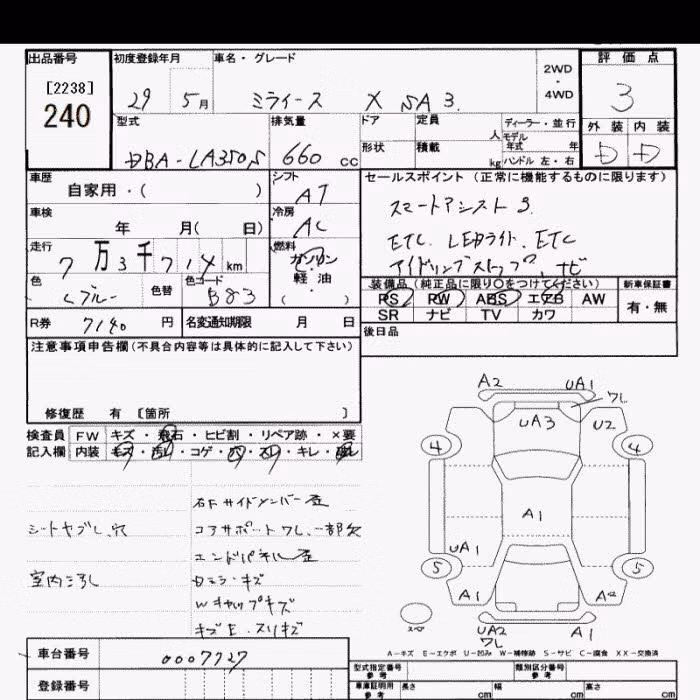 出品番号
[2238]
240
初度登録年月
29 5月
車名・グレード
ミライース X SA 3
2WD
・
4WD
評価点
3
型式
DBA-LA350S
排気量
660 cc
ドア
形状
定員
人
積載
kg
ディーラー・並行
モデル
年式 年
ハンドル 左・右
外装 内装
D D
車歴
自家用・( )
シフト
AT
車検
年 月( 日)
冷房
AC
走行
7万3千714km
燃料
ガソリン
軽油
( )
色
色替
色コード
B83
R券
7140円
名変通知期限 月 日
セールスポイント(正常に機能するものに限ります)
スマートアシスト3
ETC. LEDライト. ETC
アイドリングストップ. ナビ
装備品(純正品に限り○をつけてください)
PS PW ABS エアB AW
SR ナビ TV カワ
新車保証書
有・無
後日品
注意事項申告欄(不具合内容等は具体的に記入して下さい)
修復歴 有 [箇所 ]
検査員
記入欄
FW キズ・飛石・ヒビ割・リペア跡・×要
内装 キズ・汚レ・コゲ・穴・スレ・キレ・
シートヤブレ.穴
室内汚れ
右Fサイドメンバー歪
コアサポートワレ.一部欠
エンドパネル歪
Wキャップキズ
キズE.スリキズ
A2 UA1
ワレ
UA3
U2
4 4
A1
UA1
5 5
A1
UA2 A1
ワレ
A-キズ E-エクボ U-凹み W-補修跡 S-サビ C-腐食 XX-交換済
車台番号
0007727
登録番号
型式指定番号
参考
類別区分番号
参考
車庫証明用
参考
長さ cm 幅 cm 高さ cm